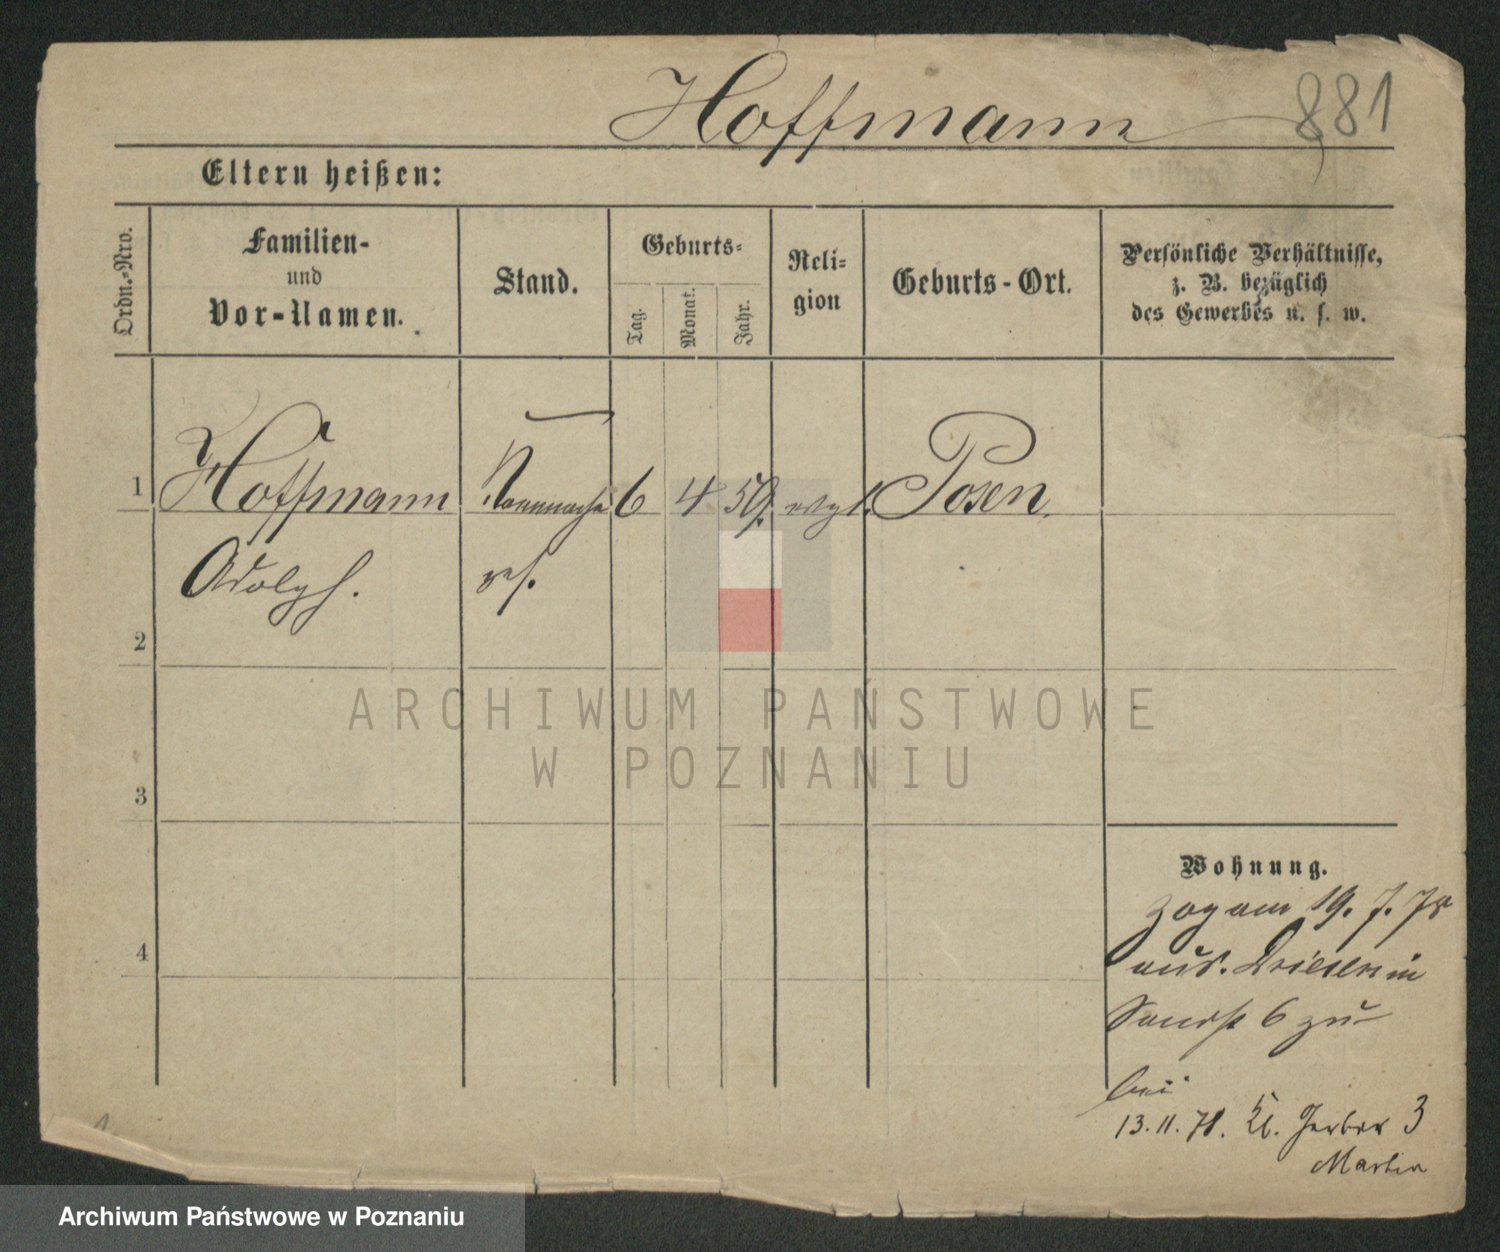 Hoffmann 881
Eltern heißen:
Ordn.-Nro.
Familien-
und
Vor-Namen.
Stand.
Geburts-
Tag.
Monat.
Jahr.
Reli-
gion
Geburts-Ort.
Persönliche Verhältnisse,
z. B. bezüglich
des Gewerbes u. s. w.
1 Hoffmann 6 4 50. evgl. Posen.
Adolph.
2
3
4
Wohnung.
Zog am 19. 7. 78
aus Driesen in
Sandst 6 zu
bei
13.11.78. Kl. Gerber 3
Martin
ARCHIWUM PAŃSTWOWE
W POZNANIU
Archiwum Państwowe w Poznaniu